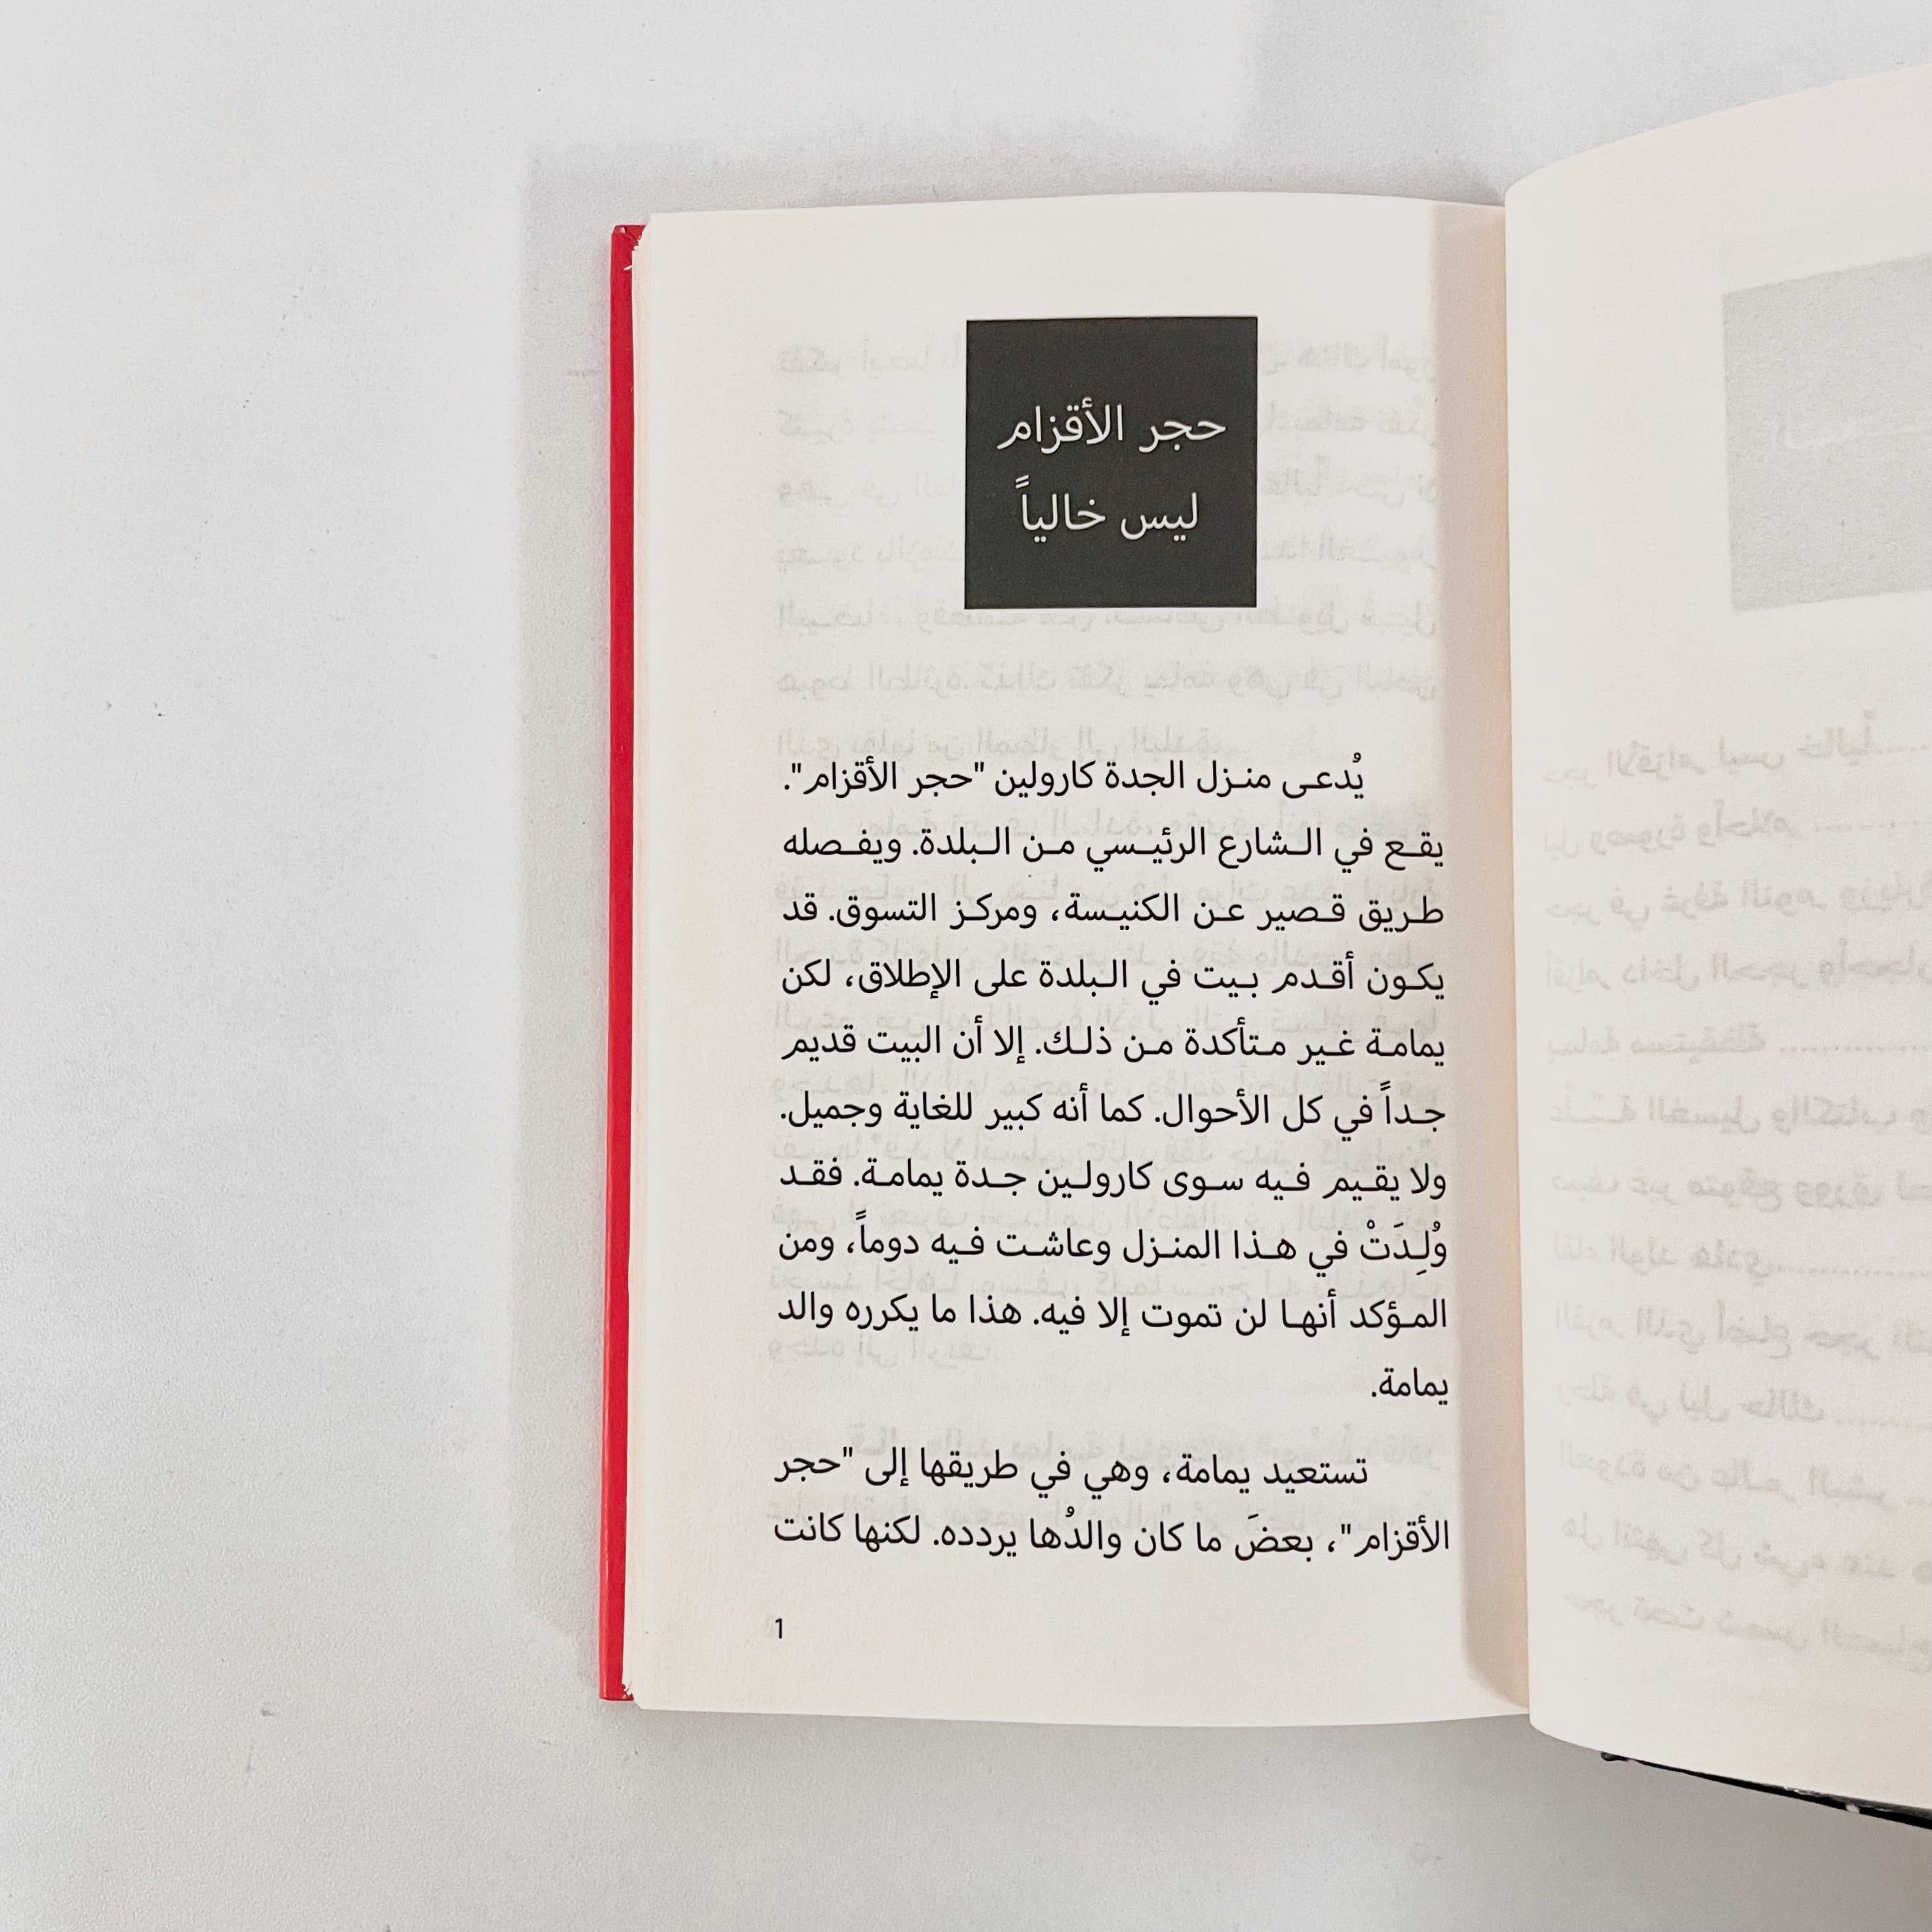 حجر الأقزام
ليس خالياً
يُدعى منزل الجدة كارولين "حجر الأقزام".
يقع في الشارع الرئيسي من البلدة. ويفصله
طريق قصير عن الكنيسة، ومركز التسوق. قد
يكون أقدم بيت في البلدة على الإطلاق، لكن
يمامة غير متأكدة من ذلك. إلا أن البيت قديم
جداً في كل الأحوال. كما أنه كبير للغاية وجميل.
ولا يقيم فيه سوى كارولين جدة يمامة. فقد
وُلِدَتْ في هذا المنزل وعاشت فيه دوماً، ومن
المؤكد أنها لن تموت إلا فيه. هذا ما يكرره والد
يمامة.
تستعيد يمامة، وهي في طريقها إلى "حجر
الأقزام"، بعضَ ما كان والدُها يردده. لكنها كانت
1